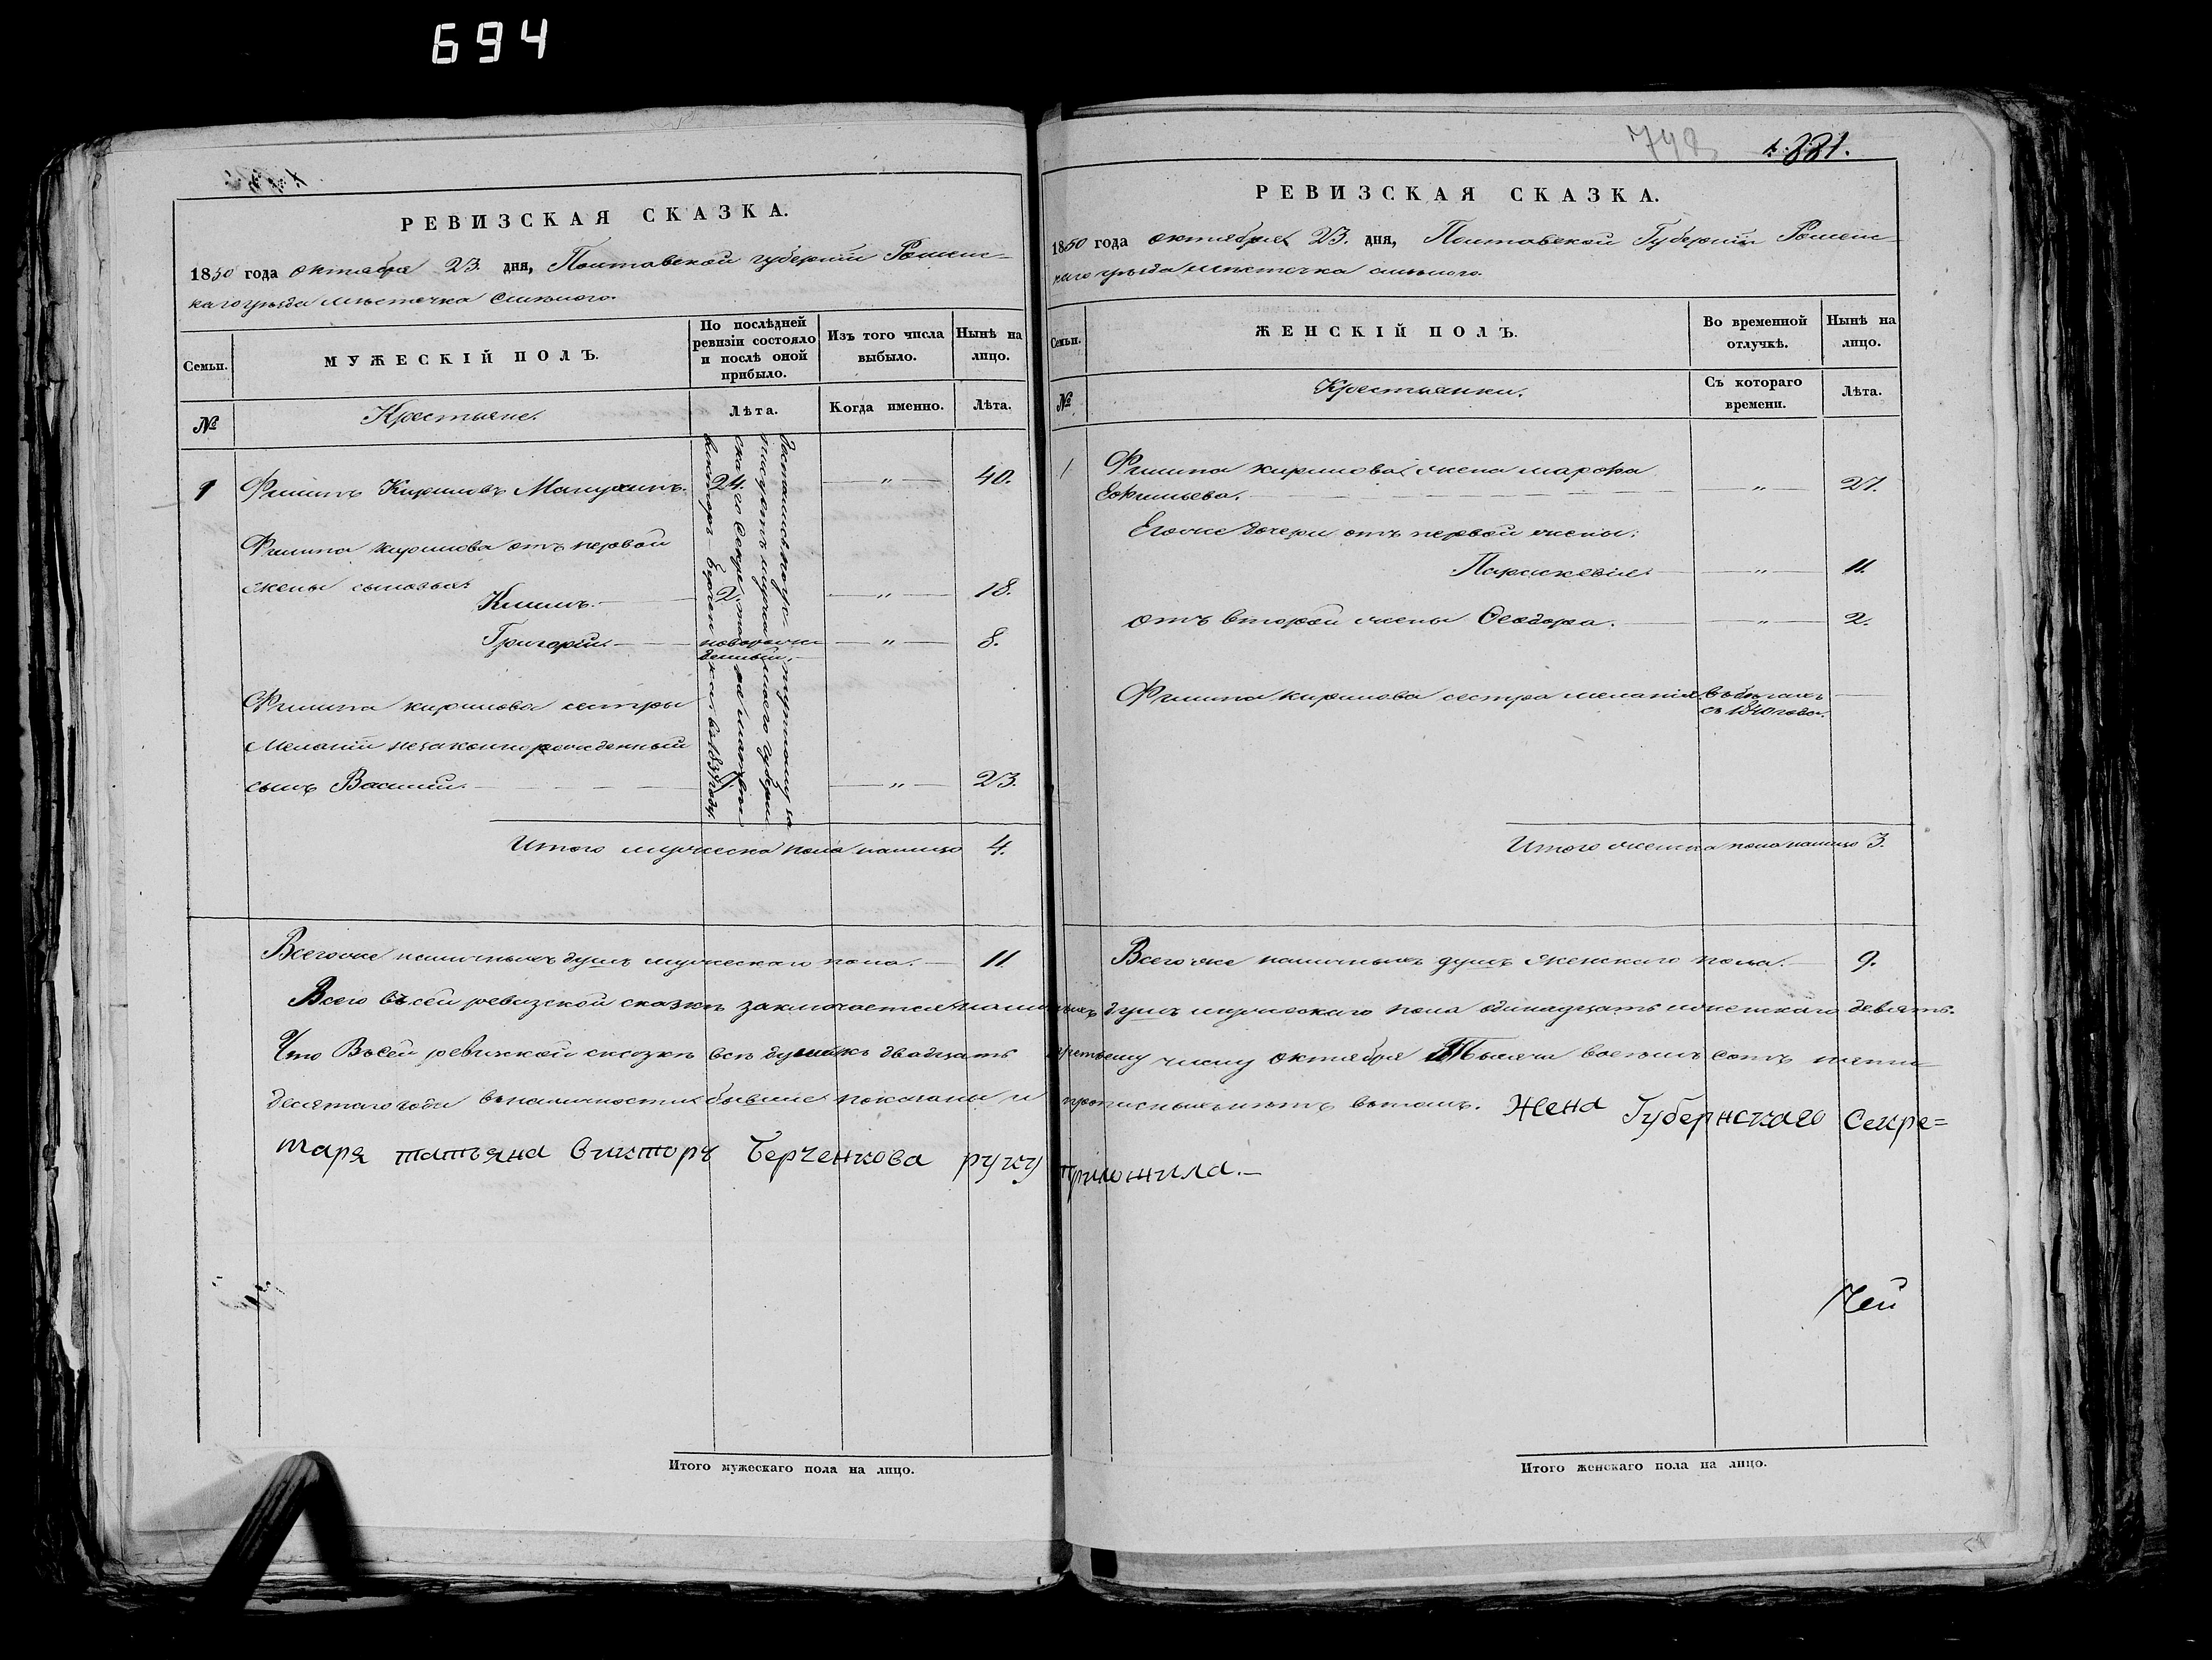 694
748
1221.
РЕВИЗСКАЯ СКАЗКА.
1850 года октября 23. дня, Полтавской губерніи Ромен-
каго уѣзда мѣстечка Смѣлого.
Семьи.
МУЖЕСКІЙ ПОЛЪ.
По послѣдней ревизіи состояло и послѣ оной прибыло.
Изъ того числа выбыло.
Нынѣ на лицо.
№
Крестьяне.
Лѣта.
Когда именно.
Лѣта.
1 Филипъ Кириловъ 24. — „ — 40.
Филипа кирилова отъ первой
жены сыновья:
Климъ. — 2. — „ — 18.
Григорій. — новорож- — „ — 8.
денный.
Филипа кирилова сестры
Меланіи незаконнорожденный
сынъ Василій. — „ — 23.
Итого мужеска пола налицо 4.
Всегоже наличныхъ душъ мужескаго пола. — 11.
РЕВИЗСКАЯ СКАЗКА.
1850 года октября 23. дня, Полтавской Губерніи Ромен-
каго уѣзда мѣстечка смѣлого.
Семьи.
ЖЕНСКІЙ ПОЛЪ.
Во временной отлучкѣ.
Нынѣ на лицо.
№
Крестьянки.
Съ котораго времени.
Лѣта.
1 Филипа кирилова жена марфа
Ефимьева. — „ — 27.
Егоже дочери отъ первой жены:
Параскевія. — „ — 11.
отъ второй жены Феодора. — „ — 2.
Филипа кирилова сестра меланія въ бѣгахъ —
съ 1840 года.
Итого женска пола налицо 3.
Всегоже наличныхъ душъ женскаго пола. — 9.
Всего въ сей ревизской сказкѣ заключается наличныхъ душъ мужескаго пола одинадцать и женскаго девять.
Что въ сей ревизской сказкѣ всѣ душы къ двадцать третьему числу октября Тысяча восемь сотъ пяти
десятаго года въ наличности бывшіе показаны и прописныхъ нѣтъ въ томъ. Жена Губернскаго Секре=
таря татьяна Викторъ Берченкова руку приложила.—
Чей
Итого мужескаго пола на лицо.
Итого женскаго пола на лицо.